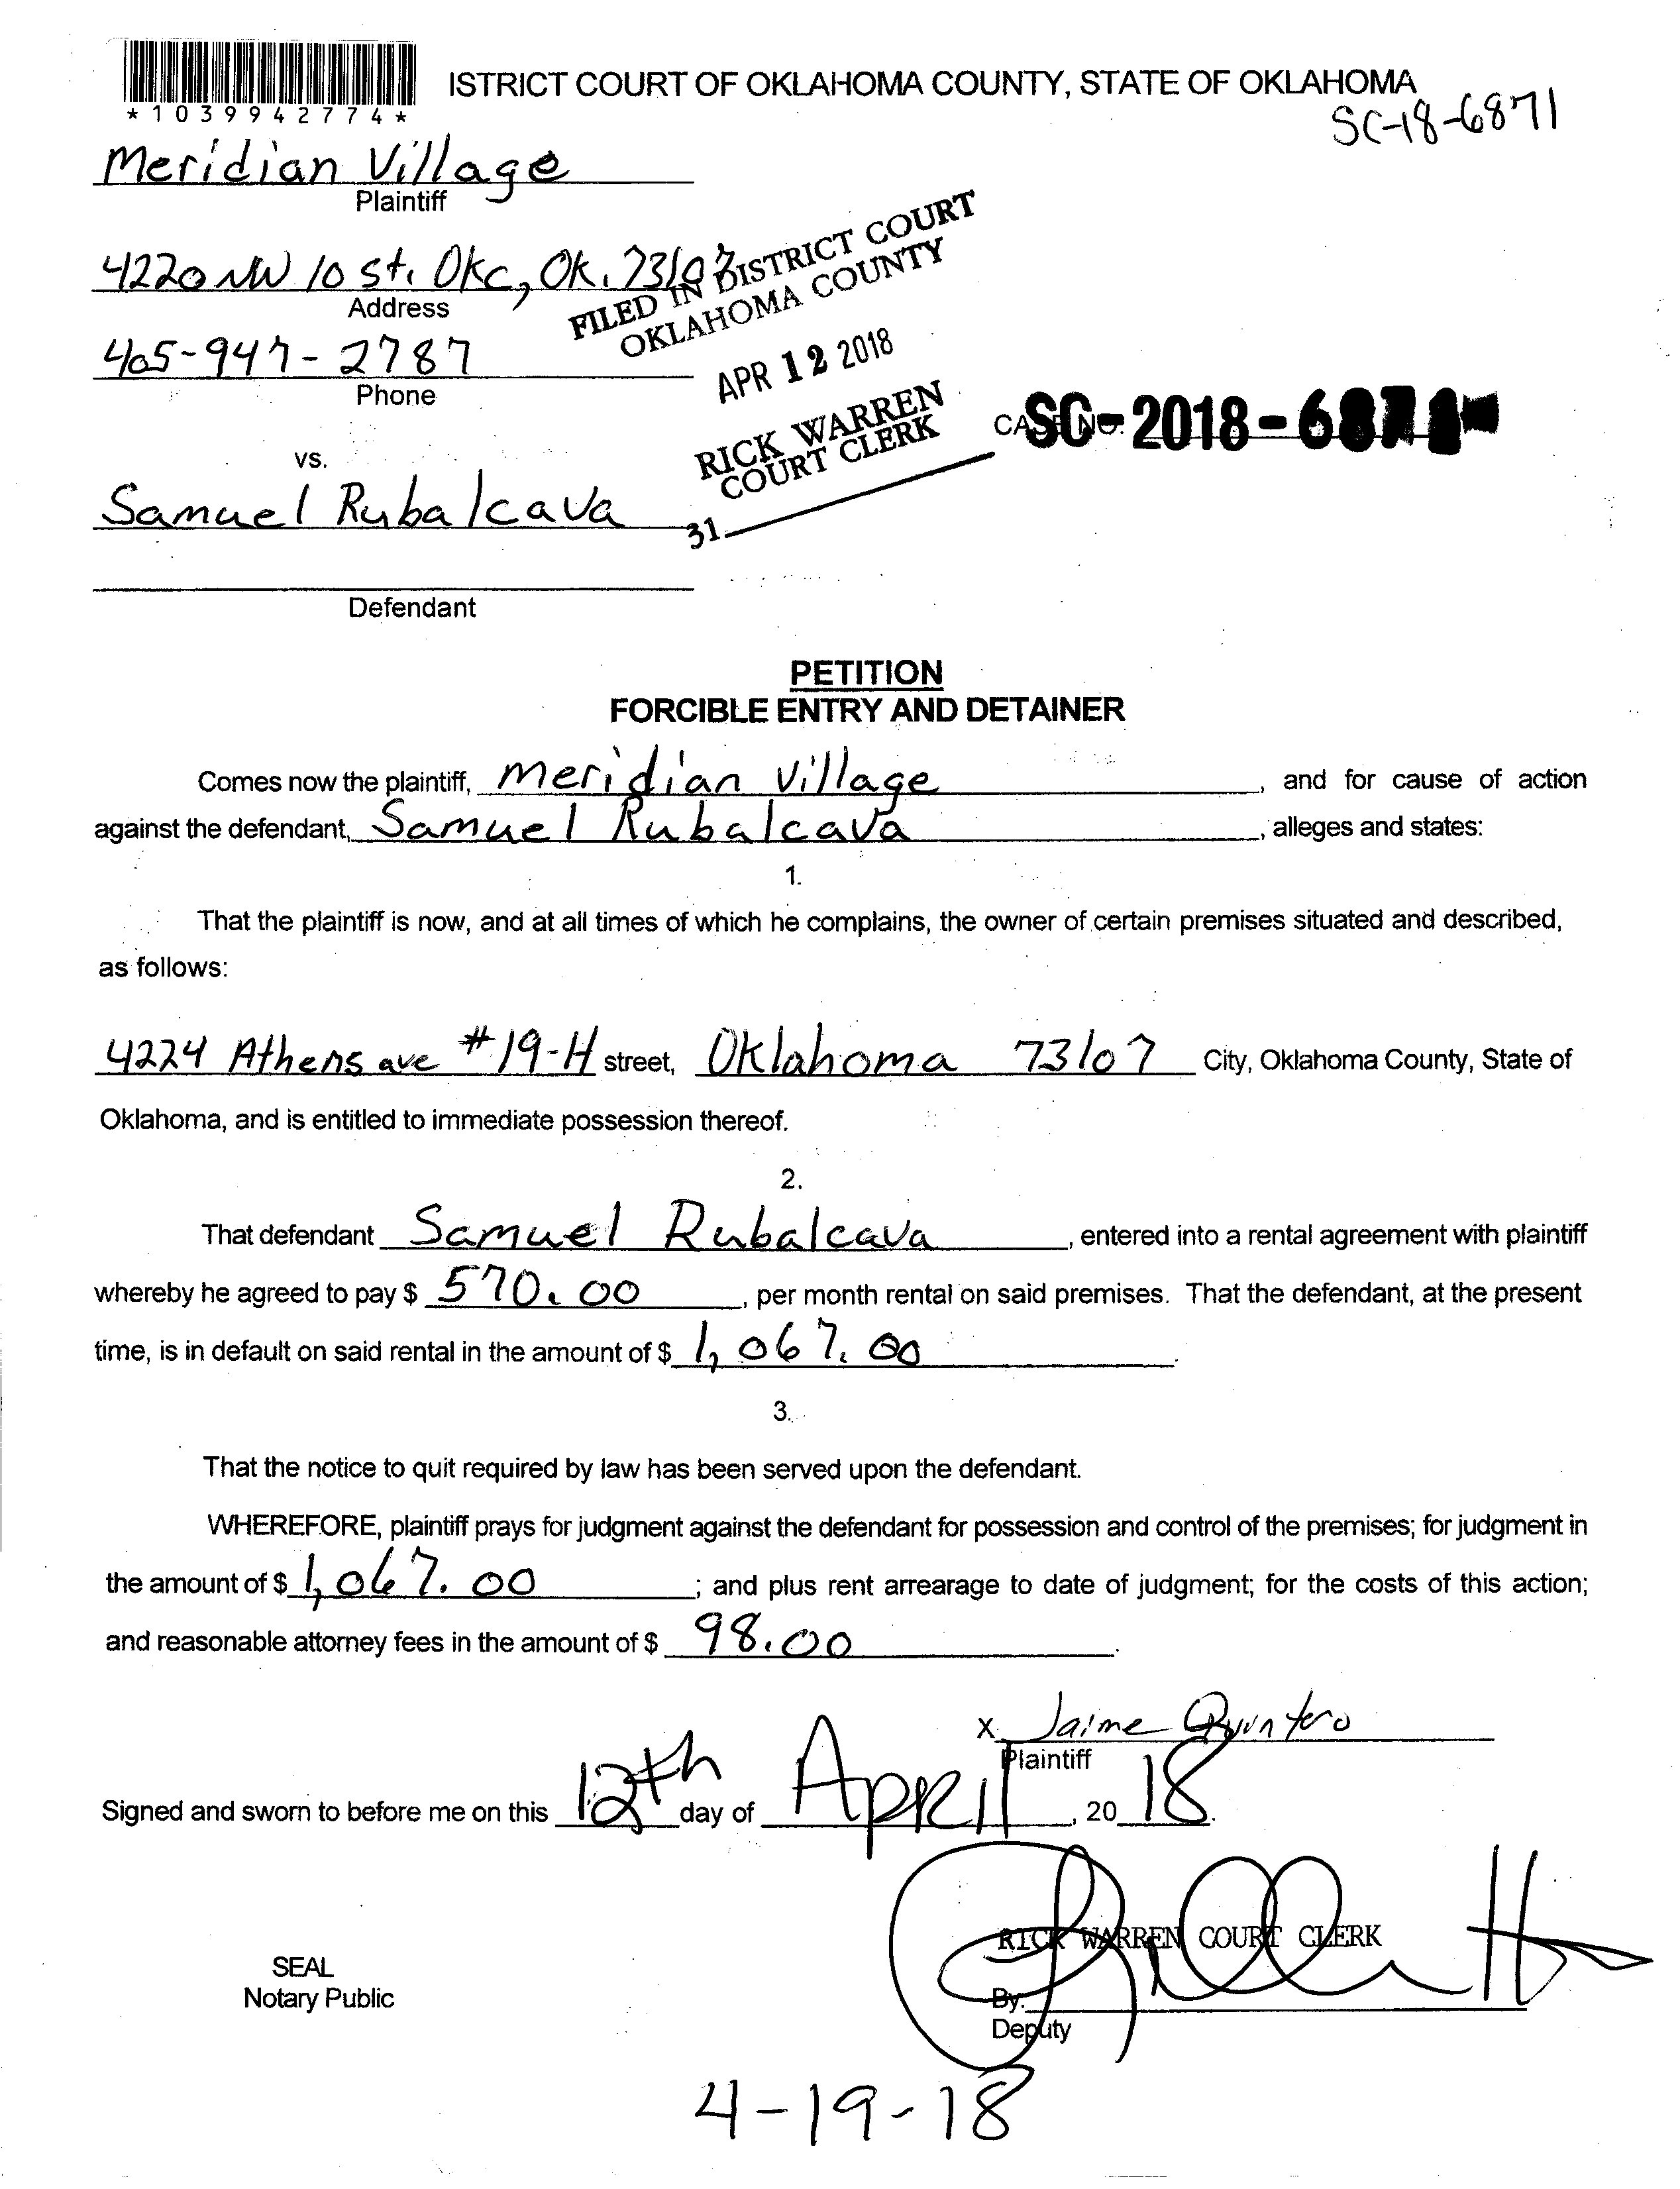 ISTRICT COURT OF OKLAHOMA COUNTY, STATE OF OKLAHOMA
*1039942774*
SC-18-6871
Meridian Village
Plaintiff
4220 NW 10 st. Okc, Ok. 73107
Address
FILED IN DISTRICT COURT
OKLAHOMA COUNTY
405-947-2787
Phone
APR 12 2018
RICK WARREN
COURT CLERK
31
SC-2018-6871
vs.
Samuel Rubalcava
Defendant
PETITION
FORCIBLE ENTRY AND DETAINER
Comes now the plaintiff, Meridian Village, and for cause of action
against the defendant, Samuel Rubalcava, alleges and states:
1.
That the plaintiff is now, and at all times of which he complains, the owner of certain premises situated and described,
as follows:
4224 Athens ave #19-H street, Oklahoma 73107 City, Oklahoma County, State of
Oklahoma, and is entitled to immediate possession thereof.
2.
That defendant Samuel Rubalcava, entered into a rental agreement with plaintiff
whereby he agreed to pay $ 570.00, per month rental on said premises. That the defendant, at the present
time, is in default on said rental in the amount of $ 1,067.00.
3.
That the notice to quit required by law has been served upon the defendant.
WHEREFORE, plaintiff prays for judgment against the defendant for possession and control of the premises; for judgment in
the amount of $ 1,067.00; and plus rent arrearage to date of judgment; for the costs of this action;
and reasonable attorney fees in the amount of $ 98.00.
X Jaime Quintero
Plaintiff
Signed and sworn to before me on this 12th day of April, 20 18.
RICK WARREN COURT CLERK
SEAL
Notary Public
By:
Deputy
4-19-18